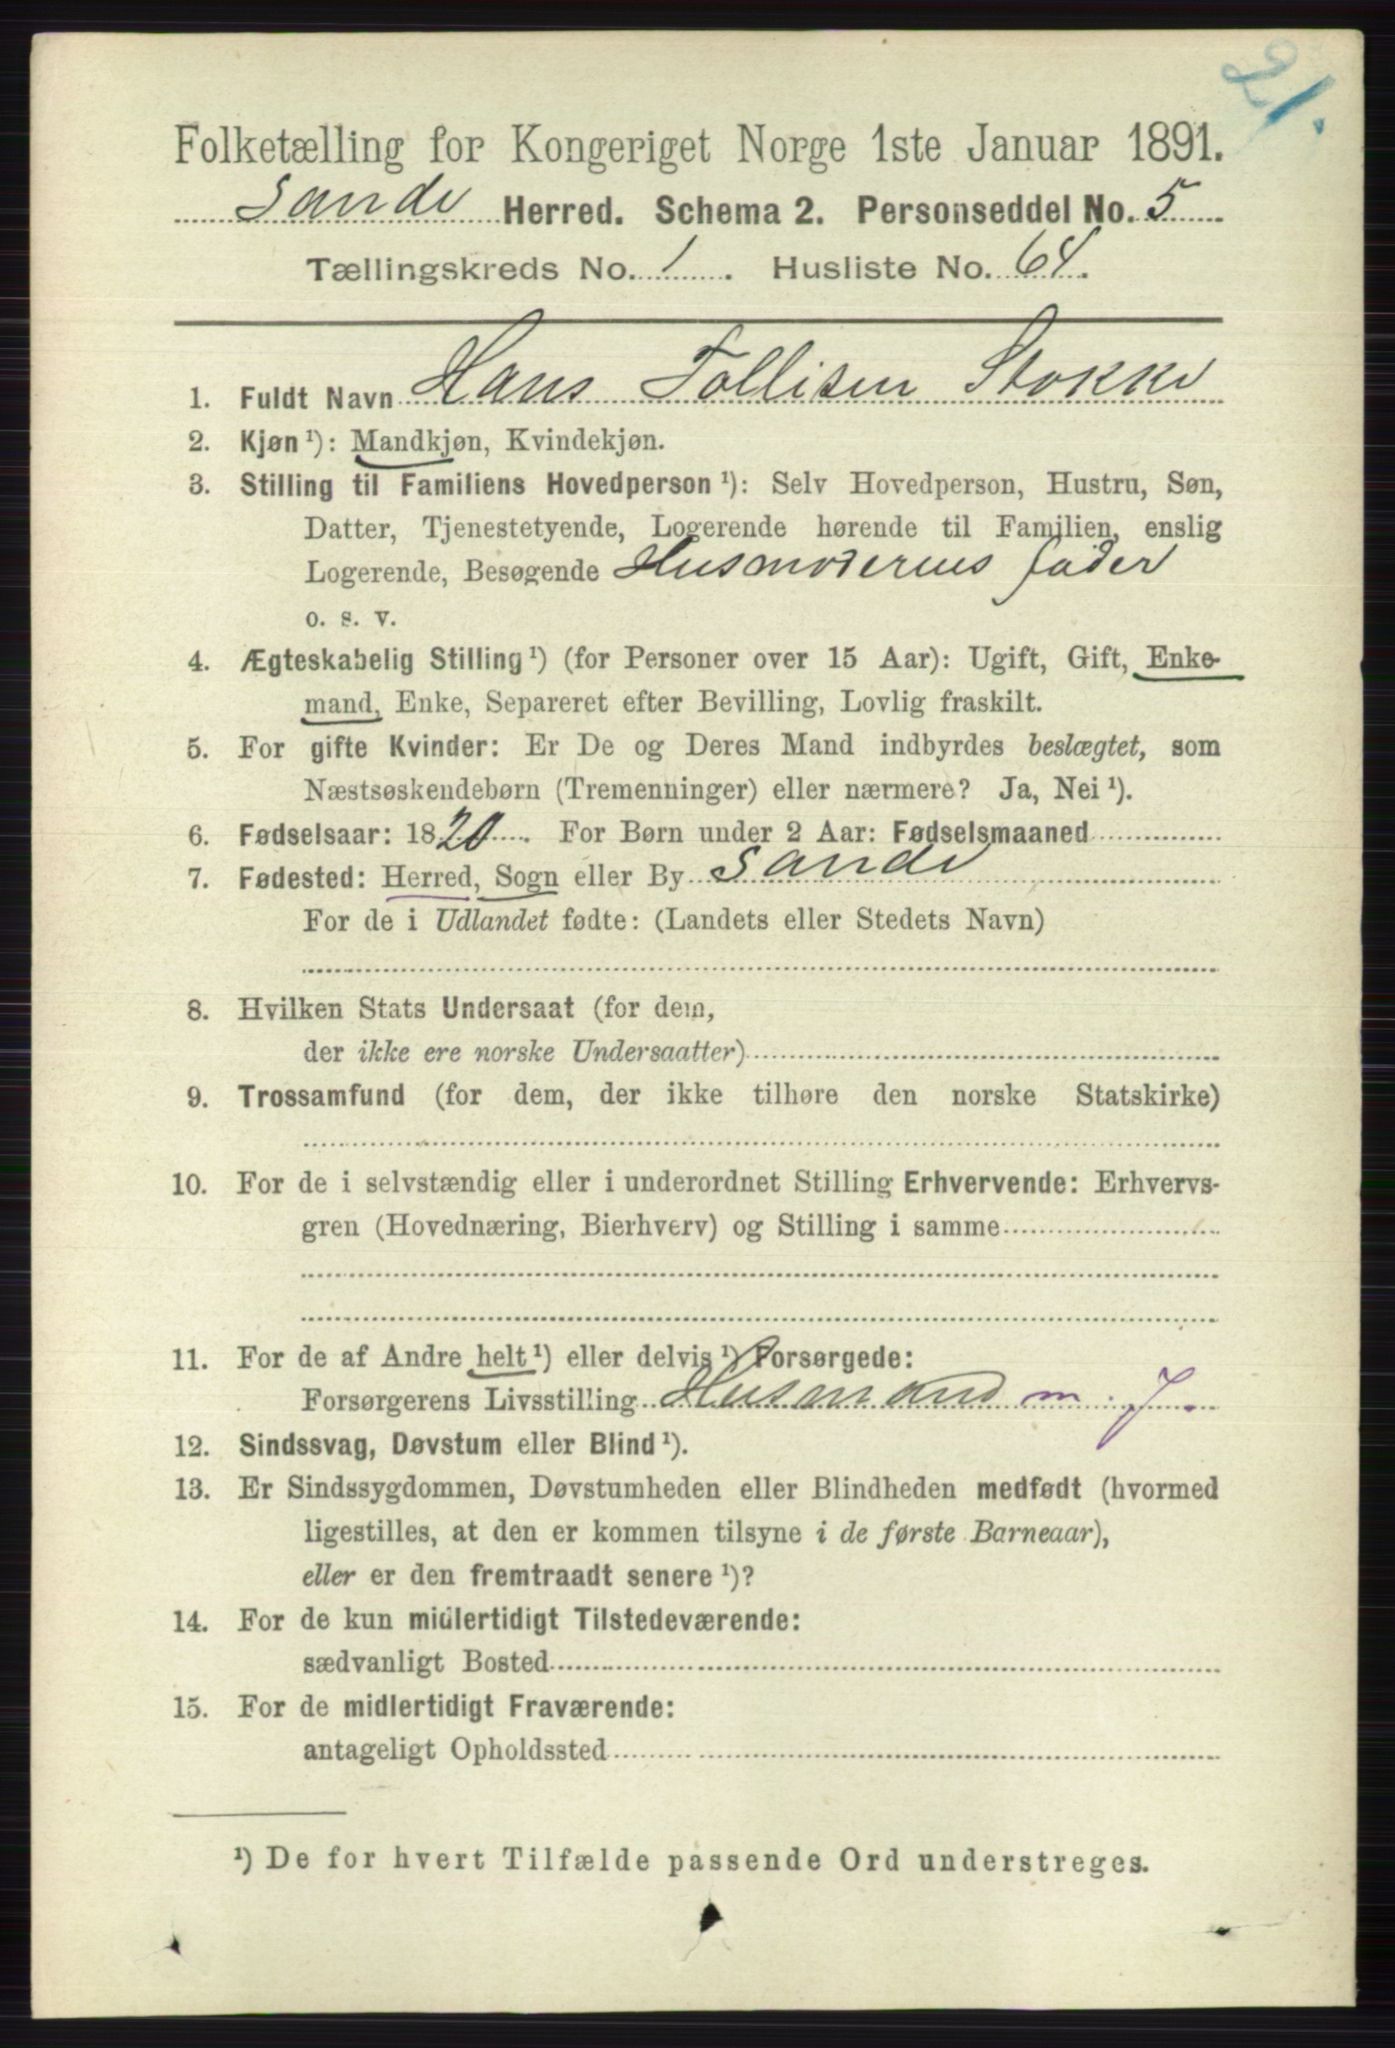 21.
Folketælling for Kongeriget Norge 1ste Januar 1891.
Sande Herred. Schema 2. Personseddel No. 5
Tællingskreds No. 1. Husliste No. 64.
1. Fuldt Navn Hans Tollisen Stokke
2. Kjøn ¹): Mandkjøn, Kvindekjøn.
3. Stilling til Familiens Hovedperson ¹): Selv Hovedperson, Hustru, Søn,
Datter, Tjenestetyende, Logerende hørende til Familien, enslig
Logerende, Besøgende Husmoderens fader
o. s. v.
4. Ægteskabelig Stilling ¹) (for Personer over 15 Aar): Ugift, Gift, Enke-
mand, Enke, Separeret efter Bevilling, Lovlig fraskilt.
5. For gifte Kvinder: Er De og Deres Mand indbyrdes beslægtet, som
Næstsøskendebørn (Tremenninger) eller nærmere? Ja, Nei ¹).
6. Fødselsaar: 1820. For Børn under 2 Aar: Fødselsmaaned
7. Fødested: Herred, Sogn eller By Sande
For de i Udlandet fødte: (Landets eller Stedets Navn)
8. Hvilken Stats Undersaat (for dem,
der ikke ere norske Undersaatter)
9. Trossamfund (for dem, der ikke tilhøre den norske Statskirke)
10. For de i selvstændig eller i underordnet Stilling Erhvervende: Erhvervs-
gren (Hovednæring, Bierhverv) og Stilling i samme
11. For de af Andre helt ¹) eller delvis ¹) Forsørgede:
Forsørgerens Livsstilling Husmand m. J.
12. Sindssvag, Døvstum eller Blind ¹).
13. Er Sindssygdommen, Døvstumheden eller Blindheden medfødt (hvormed
ligestilles, at den er kommen tilsyne i de første Barneaar),
eller er den fremtraadt senere ¹)?
14. For de kun midlertidigt Tilstedeværende:
sædvanligt Bosted
15. For de midlertidigt Fraværende:
antageligt Opholdssted
¹) De for hvert Tilfælde passende Ord understreges.